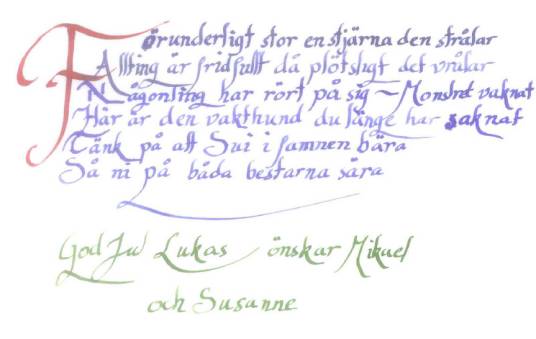 Förunderligt stor en stjärna den strålar
Allting är fridfullt då plötsligt det vrålar
Någonting har rört på sig ~ Monstret vaknat
Här är den vakthund du länge har saknat
Tänk på att Sui i famnen bära
Så ni på båda bestarna såra
God Jul Lukas önskar Mikael
och Susanne